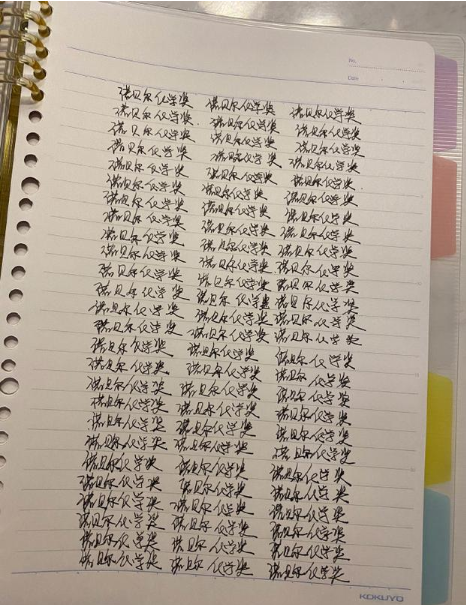 No.
Date
诺贝尔化学奖 诺贝尔化学奖 诺贝尔化学奖
诺贝尔化学奖 诺贝尔化学奖 诺贝尔化学奖
诺贝尔化学奖 诺贝尔化学奖 诺贝尔化学奖
诺贝尔化学奖 诺贝尔化学奖 诺贝尔化学奖
诺贝尔化学奖 诺贝尔化学奖 诺贝尔化学奖
诺贝尔化学奖 诺贝尔化学奖 诺贝尔化学奖
诺贝尔化学奖 诺贝尔化学奖 诺贝尔化学奖
诺贝尔化学奖 诺贝尔化学奖 诺贝尔化学奖
诺贝尔化学奖 诺贝尔化学奖 诺贝尔化学奖
诺贝尔化学奖 诺贝尔化学奖 诺贝尔化学奖
诺贝尔化学奖 诺贝尔化学奖 诺贝尔化学奖
诺贝尔化学奖 诺贝尔化学奖 诺贝尔化学奖
诺贝尔化学奖 诺贝尔化学奖 诺贝尔化学奖
诺贝尔化学奖 诺贝尔化学奖 诺贝尔化学奖
诺贝尔化学奖 诺贝尔化学奖 诺贝尔化学奖
诺贝尔化学奖 诺贝尔化学奖 诺贝尔化学奖
诺贝尔化学奖 诺贝尔化学奖 诺贝尔化学奖
诺贝尔化学奖 诺贝尔化学奖 诺贝尔化学奖
诺贝尔化学奖 诺贝尔化学奖 诺贝尔化学奖
诺贝尔化学奖 诺贝尔化学奖 诺贝尔化学奖
诺贝尔化学奖 诺贝尔化学奖 诺贝尔化学奖
诺贝尔化学奖 诺贝尔化学奖 诺贝尔化学奖
诺贝尔化学奖 诺贝尔化学奖 诺贝尔化学奖
诺贝尔化学奖 诺贝尔化学奖 诺贝尔化学奖
诺贝尔化学奖 诺贝尔化学奖 诺贝尔化学奖
诺贝尔化学奖 诺贝尔化学奖 诺贝尔化学奖
KOKUYO